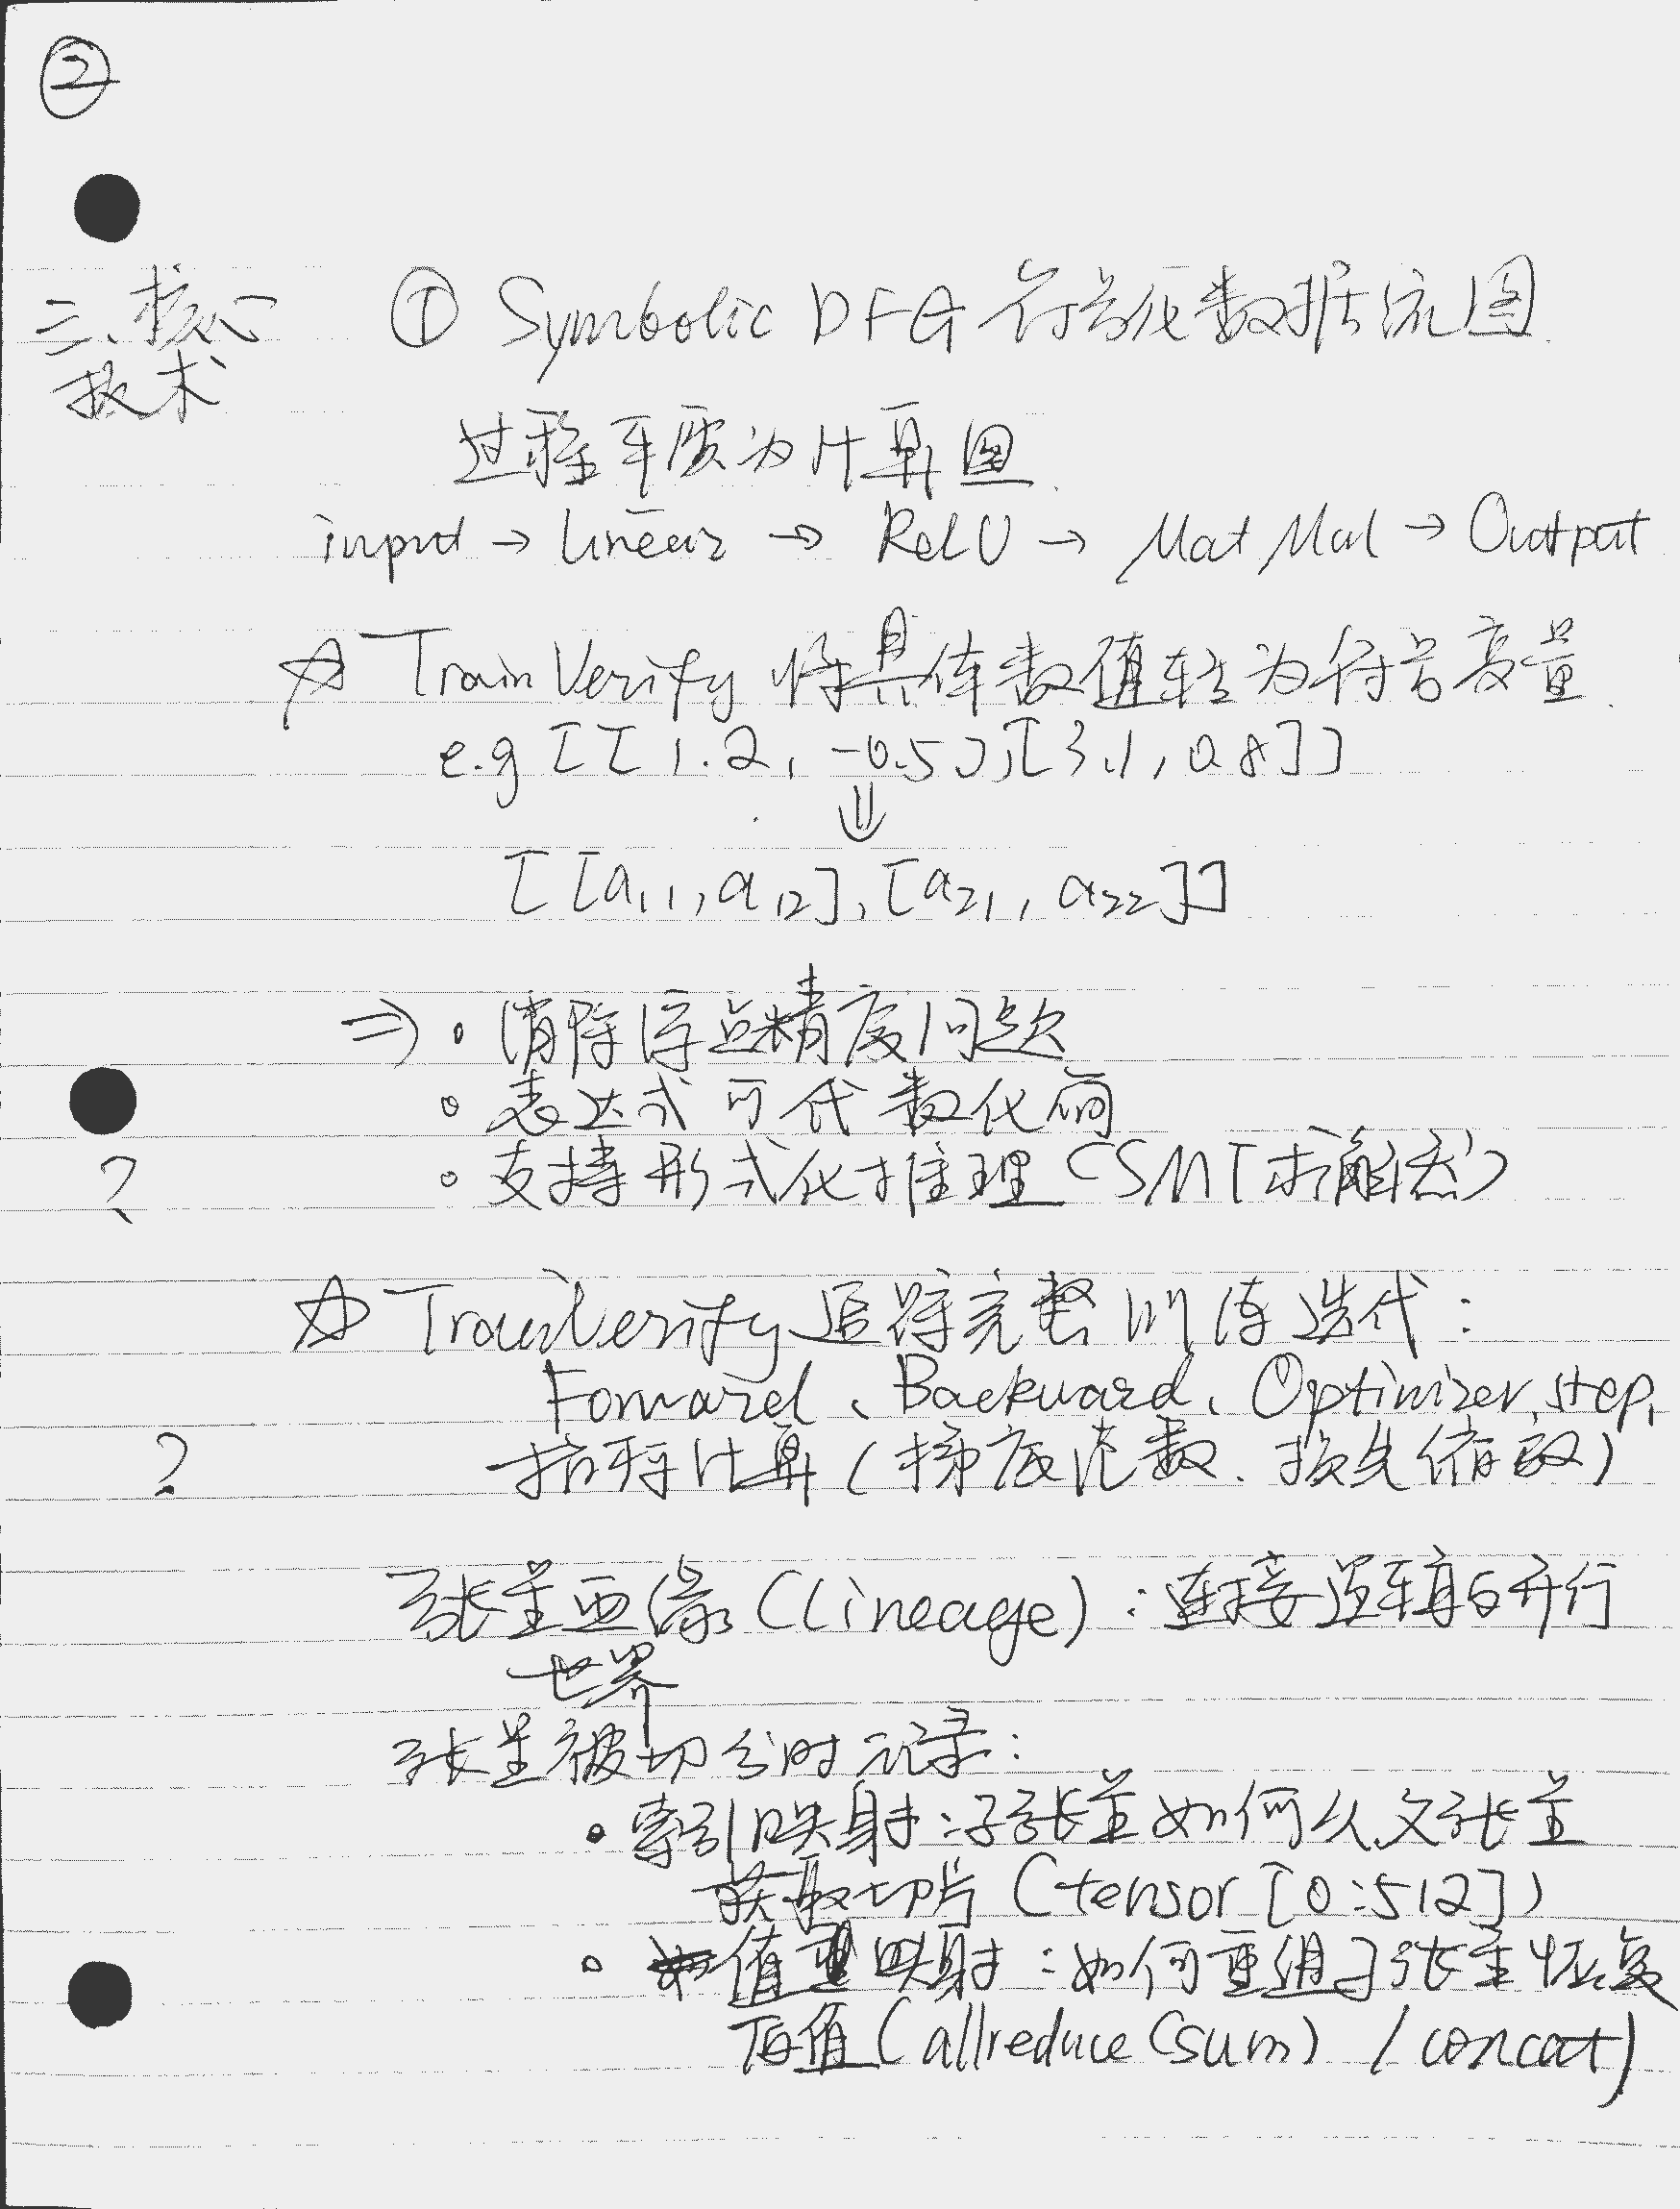 ②
三、核心技术
① Symbolic DFG 符号化数据流图
过程本质为计算图
input → Linear → ReLU → MatMul → Output
☆ TrainVerify 将具体数值转为符号变量
e.g [[1.2, -0.5],[3.1, 0.8]]
⇓
[[a₁₁, a₁₂], [a₂₁, a₂₂]]
⇒ • 消除浮点精度问题
• 表达式可代数化简
? • 支持形式化推理 (SMT求解器)
☆ TrainVerify 追踪完整训练迭代:
Forward、Backward、Optimizer.step,
? 计算(梯度范数、损失缩放)
张量血缘(Lineage):连接逻辑与并行
世界
张量被切分时记录:
• 索引映射:子张量如何从父张量
获取切片 (tensor [0:512])
• 值映射:如何重组子张量恢复
值(allreduce(sum) / concat)